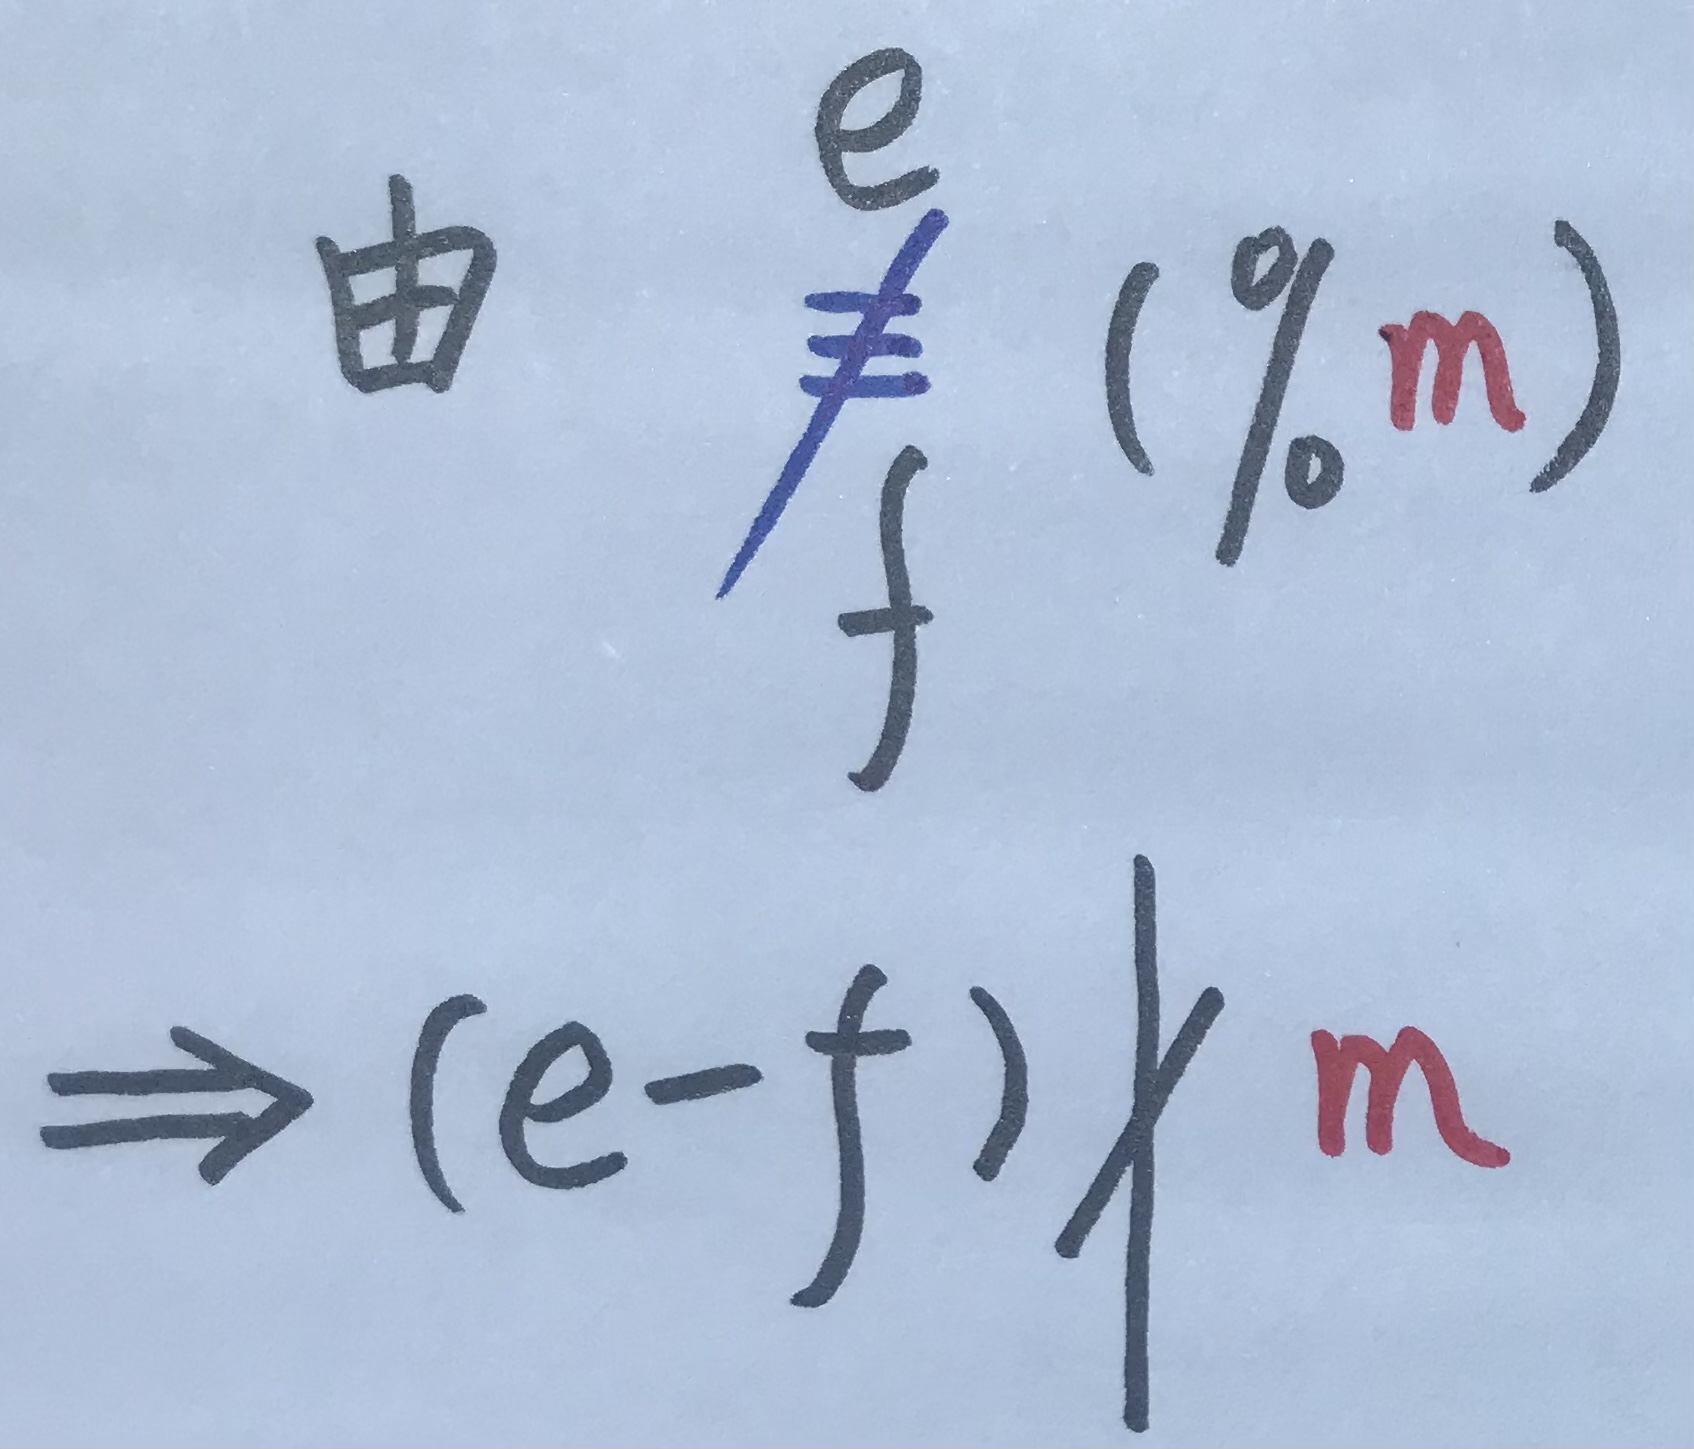 由 e ≢ f (% m)
⇒ (e-f) ∤ m